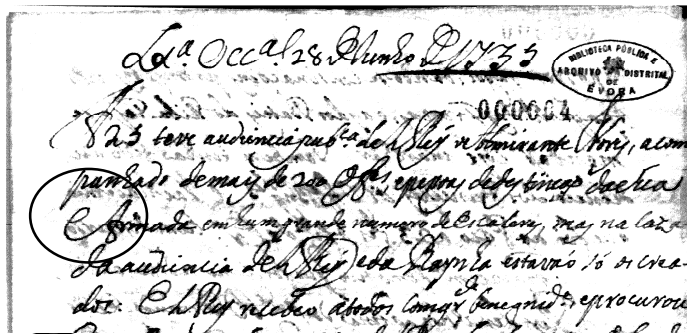 Lxa. Occal 28 de Junho de 1735
BIBLIOTECA PÚBLICA E
ARQUIVO DISTRITAL
DE
ÉVORA
000004
A 23 teve audiencia pubca. de el Rey o Almirante Noris, acom
panhado de mais de 200 e pessoas de destinção da sua
Armada em hum grande numero de Escaleres, mas na caza
da audiencia de el Rey e da Raynha estavão só os crea-
dos: El Rey recebeo a todos com gde. benegnide. e procurou